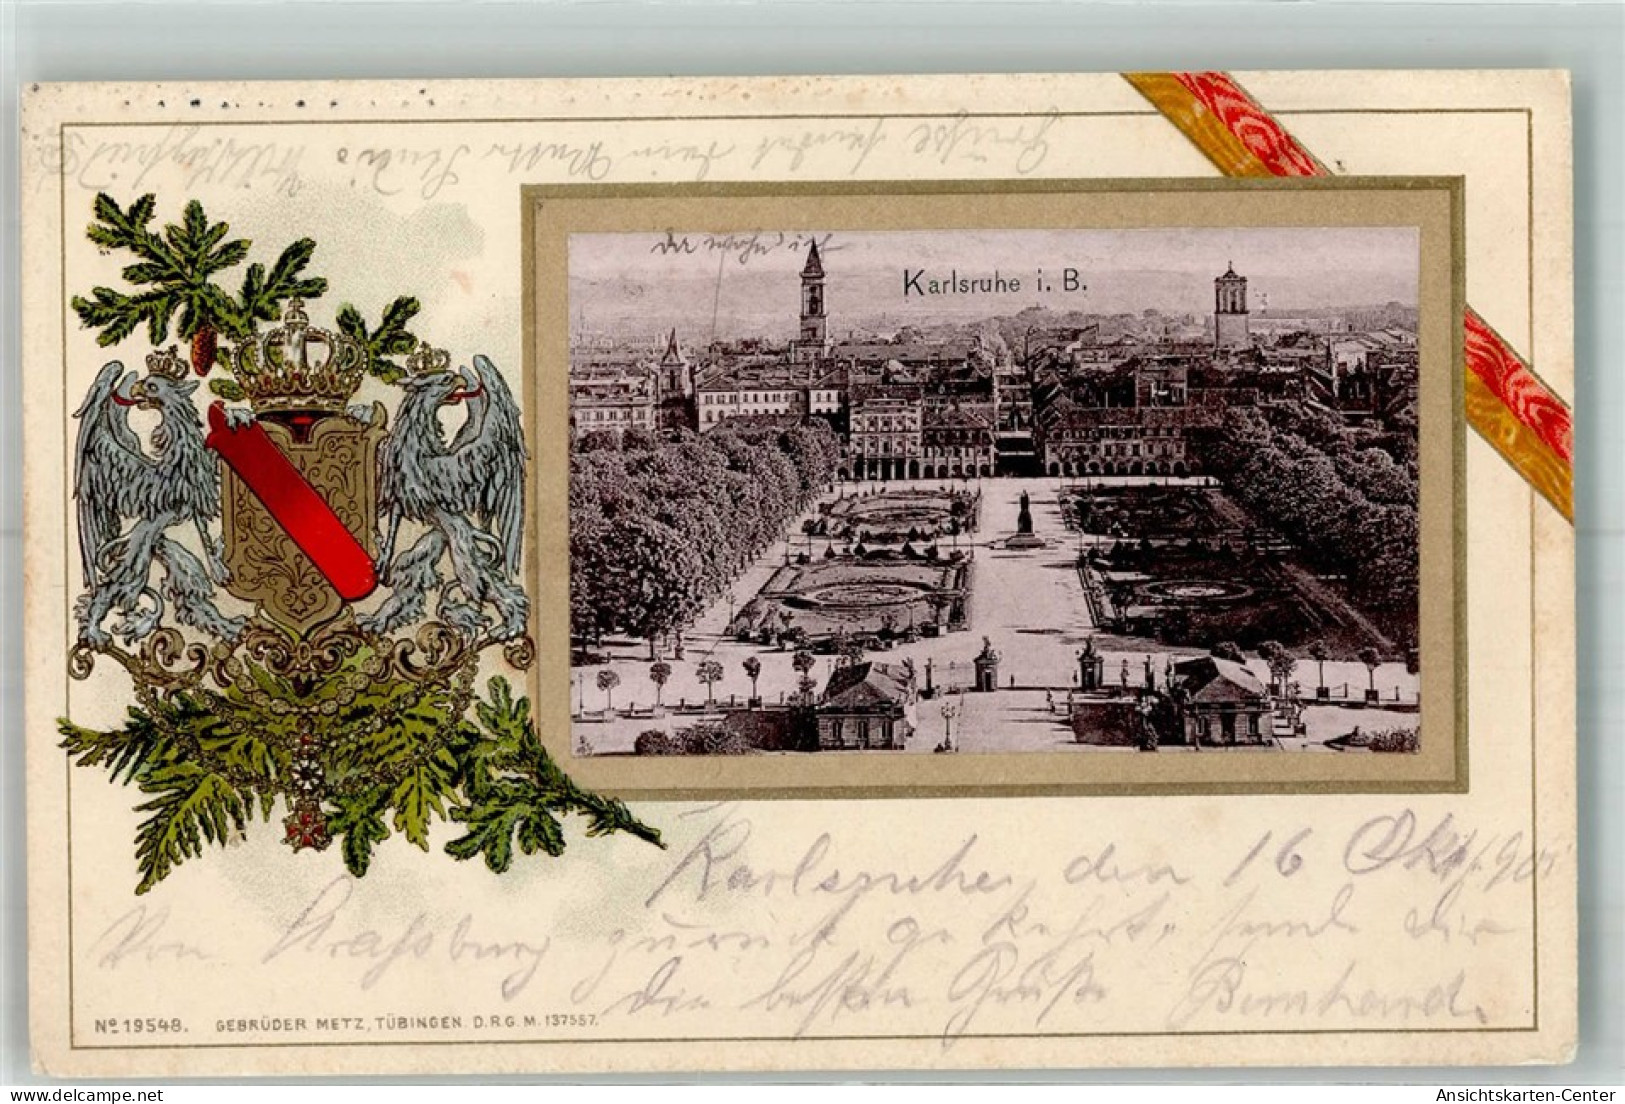 Grüße sendet dein
da wohn ich
Karlsruhe i. B.
Karlsruhe, den 16 Okt. 1905
Von Straßburg zurück gekehrt, sende dir
die besten Grüße Bernhard.
No 19548. GEBRÜDER METZ, TÜBINGEN. D.R.G.M. 137557.
Ansichtskarten-Center